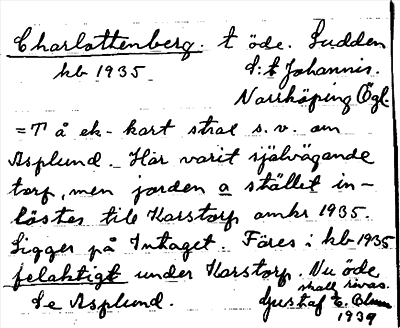 Charlottenberg. t öde. Sudden
kb 1935
S:t Johannis.
Norrköping Ögl.
= T å ek-kart strax s.v. om
Asplund. Har varit självägande
torp, men jorden a stället in-
löstes till Karstorp omkr 1935.
Ligger på Intaget. Föres i kb 1935
felaktigt under Karstorp. Nu öde
skall rivas.
Se Asplund. Gustaf E. Blum
1939